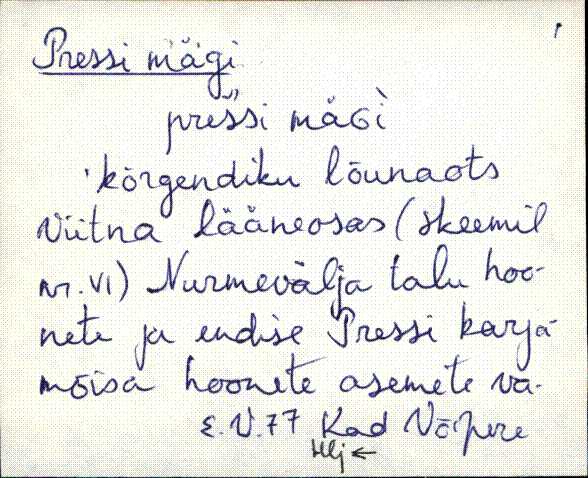 Pressi mägi
pressi mäGi
kõrgendiku lõunaots
Viitna lääneosas (skeemil
nr. VI) Nurmevälja talu hoo-
nete ja endise Pressi karja-
mõisa hoonete asemete va-
E.V.77 Kad Võipere
Hlj ←